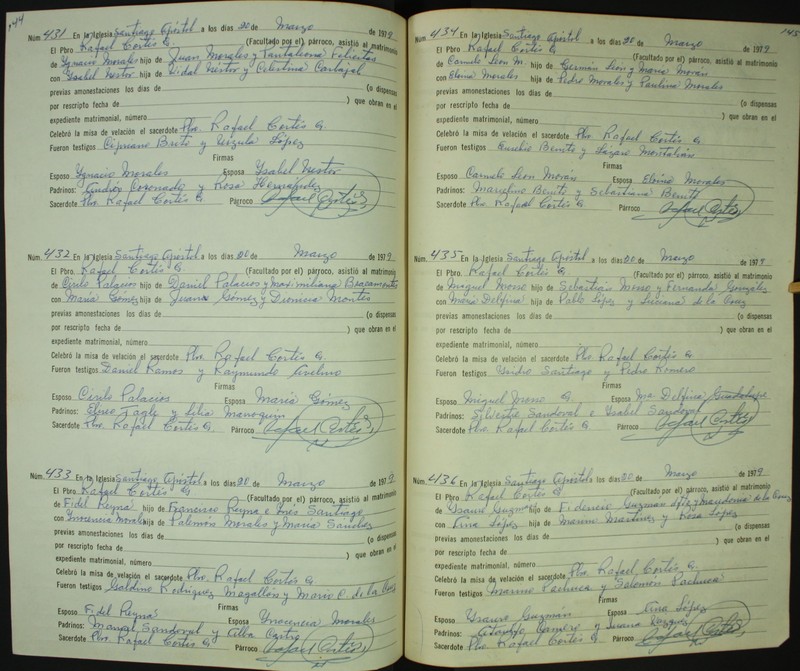 144
Núm. 431 En la Iglesia Santiago Apóstol a los días 20 de Marzo de 1979
El Pbro Rafael Cortés G. (Facultado por el) párroco, asistió al matrimonio
de Ygnacio Morales hijo de Juan Morales y Pantaleona Felicitas
con Ysabel Nestor hija de Vidal Nestor y Celestina Carbajal
previas amonestaciones los días de (o dispensas
por rescripto fecha de ) que obran en el
expediente matrimonial, número
Celebró la misa de velación el sacerdote Pbro. Rafael Cortés G.
Fueron testigos Cipriano Brito y Ursula López
Firmas
Esposo Ygnacio Morales Esposa Ysabel Nestor
Padrinos: Andrés Coronado y Rosa Hernández
Sacerdote Pbro. Rafael Cortés G. Párroco Rafael Cortés
Núm. 432 En la Iglesia Santiago Apóstol a los días 20 de Marzo de 1979
El Pbro. Rafael Cortés G. (Facultado por el) párroco, asistió al matrimonio
de Cirilo Palacios hijo de Daniel Palacios y Maximiliana Bracamontes
con María Gómez hija de Gómez y Montes
previas amonestaciones los días de (o dispensas
por rescripto fecha de ) que obran en el
expediente matrimonial, número
Celebró la misa de velación el sacerdote Pbro. Rafael Cortés G.
Fueron testigos Daniel Ramos y Raymundo Avelino
Firmas
Esposo Cirilo Palacios Esposa María Gómez
Padrinos: Eliseo Tagle y Lilia
Sacerdote Pbro. Rafael Cortés G. Párroco Rafael Cortés
Núm. 433 En la Iglesia Santiago Apóstol a los días 20 de Marzo de 1979
El Pbro. Rafael Cortés G. (Facultado por el) párroco, asistió al matrimonio
de Fidel Reyna hijo de Francisco Reyna e Inés Santiago
con Ynocencia Morales hija de Palemón Morales y María Sánchez
previas amonestaciones los días de (o dispensas
por rescripto fecha de ) que obran en el
expediente matrimonial, número
Celebró la misa de velación el sacerdote Pbro. Rafael Cortés G.
Fueron testigos Galdino Rodríguez Magallón y Mario C. de la Cruz
Firmas
Esposo Fidel Reyna Esposa Ynocencia Morales
Padrinos: Manuel Sandoval y Alba Castro
Sacerdote Pbro. Rafael Cortés G. Párroco Rafael Cortés
145
Núm. 434 En la Iglesia Santiago Apóstol a los días 20 de Marzo de 1979
El Pbro Rafael Cortés G. (Facultado por el) párroco, asistió al matrimonio
de Camelo Leon M. hijo de Germán León y María Morán
con Eloina Morales hija de Pedro Morales y Paulina Morales
previas amonestaciones los días de (o dispensas
por rescripto fecha de ) que obran en el
expediente matrimonial, número
Celebró la misa de velación el sacerdote Pbro. Rafael Cortés G.
Fueron testigos Benito y Lázaro Montalván
Firmas
Esposo Camelo Leon Morán Esposa Eloina Morales
Padrinos: Marcelino Benito y Sebastiana Benito
Sacerdote Pbro. Rafael Cortés G. Párroco Rafael Cortés
Núm. 435 En la Iglesia Santiago Apóstol a los días 20 de Marzo de 1979
El Pbro. Rafael Cortés G. (Facultado por el) párroco, asistió al matrimonio
de Miguel hijo de Sebastián y Fernanda González
con María Delfina hija de Pablo López y Luciana de la Cruz
previas amonestaciones los días de (o dispensas
por rescripto fecha de ) que obran en el
expediente matrimonial, número
Celebró la misa de velación el sacerdote Pbro. Rafael Cortés G.
Fueron testigos Santiago y Pedro Romero
Firmas
Esposo Miguel G. Esposa Ma. Delfina Guadalupe
Padrinos: Silvestre Sandoval e Ysabel Sandoval
Sacerdote Pbro. Rafael Cortés G. Párroco Rafael Cortés
Núm. 436 En la Iglesia Santiago Apóstol a los días 20 de Marzo de 1979
El Pbro Rafael Cortés G. (Facultado por el) párroco, asistió al matrimonio
de Guzmán hijo de Fidencio Guzmán y Macedonia de la Cruz
con Ana López hija de Martínez y Rosa López
previas amonestaciones los días de (o dispensas
por rescripto fecha de ) que obran en el
expediente matrimonial, número
Celebró la misa de velación el sacerdote Pbro. Rafael Cortés G.
Fueron testigos Pacheco y Salomón Pacheco
Firmas
Esposo Ysauro Guzmán Esposa Ana López
Padrinos: y Juana Vázquez
Sacerdote Pbro Rafael Cortés G. Párroco Rafael Cortés